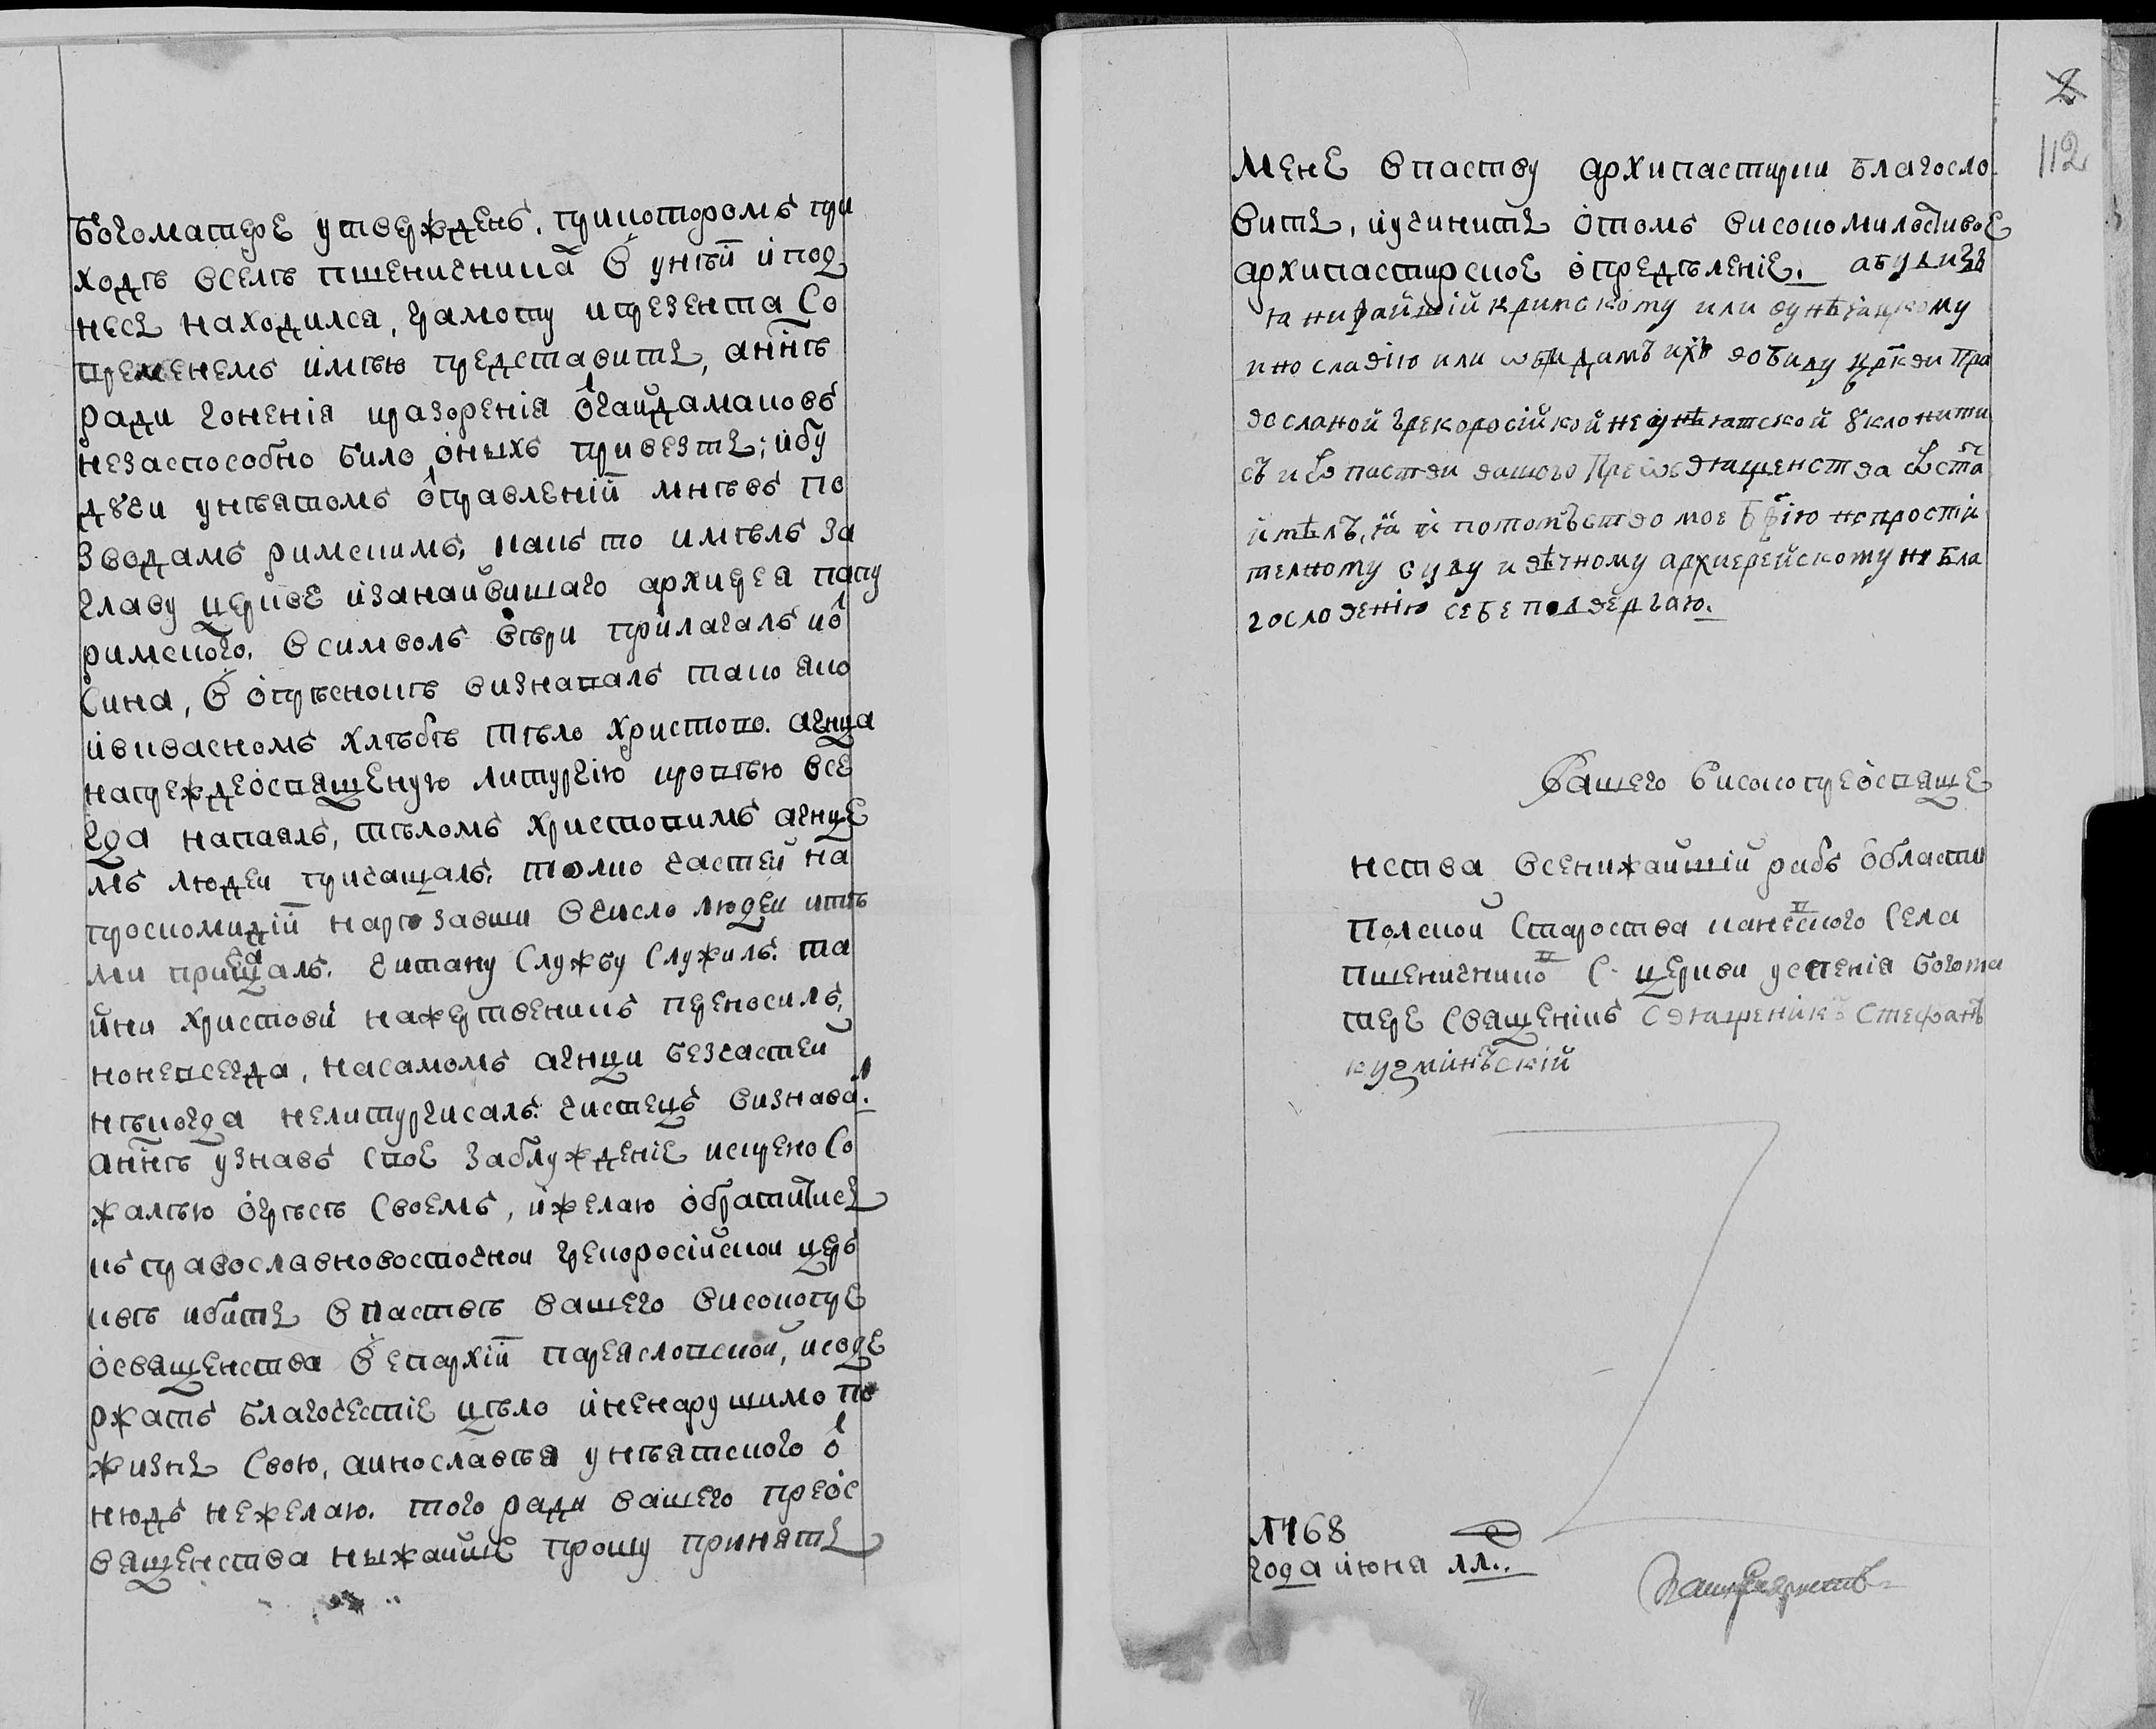 Богоматере утвержденъ, прикоторомъ при
ходѣ Всемъ пшеничникá В унѣїи и под
несь находился, грамоту ипрезента Со
временемъ имѣю представить, аннѣ
ради гоненія иразоренія ѿгайдамаковъ
незаспособно било оныхъ привезть; ибу
дучи унѣятомъ ѿправленїи мнѣвъ по
Зводамъ римскимъ, какъ то имѣлъ За
Главу церкве изанаивишаго архиерея папу
римского. Всимволъ вѣри прилагалъ иѿ
Сина, В опрѣснокѣ визнавалъ тако яко
ивиквасномъ хлѣбѣ тѣло Христово. агнца
напреждеосвященную литургію кровѣю все
гда напаялъ, тѣломъ Христовимъ агнце
мъ людей причащалъ, толко частей на
проскомидїи нарѣзавши Вчисло людей итѣ
ми причащалъ. читану Службу Служилъ. та
йни Христови нажертвенникъ преносилъ,
ноневсегда, насамомъ агнци безчастей
нѣкогда нелитургисалъ. чистецъ визнавá.
аннѣ узнавъ Свое Заблужденіе искрено Со
жалѣю огрѣсѣ Своемъ, ижелаю обратитись
къ православновосточной грекоросійской церъ
квѣ ибить В паствѣ вашего високопре
освященства В епархїи переяславской, исоде
ржать благочестіе цѣло иненарушимо по
жизнь Свою, аинославѣя унѣятского ѿ
нюдъ нежелаю. того ради вашего преос
вященства нижайше прошу принять
2
112
Мене Впаству архипастирски благосло
вить, иучинить отомъ високомилостивое
архипастирское опредѣленіе. абудизъ
я нижайшій кримскому или оунѣяцкому
инославію или
вославной грекоросійкой неунѣятской уклонити
сь и ѿ паствы вашого Преосвященства ѿста
потомъство мое Бжію
телному суду и вѣчному архиерейскому не бла
гословенію себе подвергаю.
Вашего високопреосвяще
нства Всенижайшій рабъ области
полской Староства каневского Села
пшеничнико С. церкви успенія богома
тере Священикъ Священикъ Стефанъ
кузминъскій
1768
года июня 11..